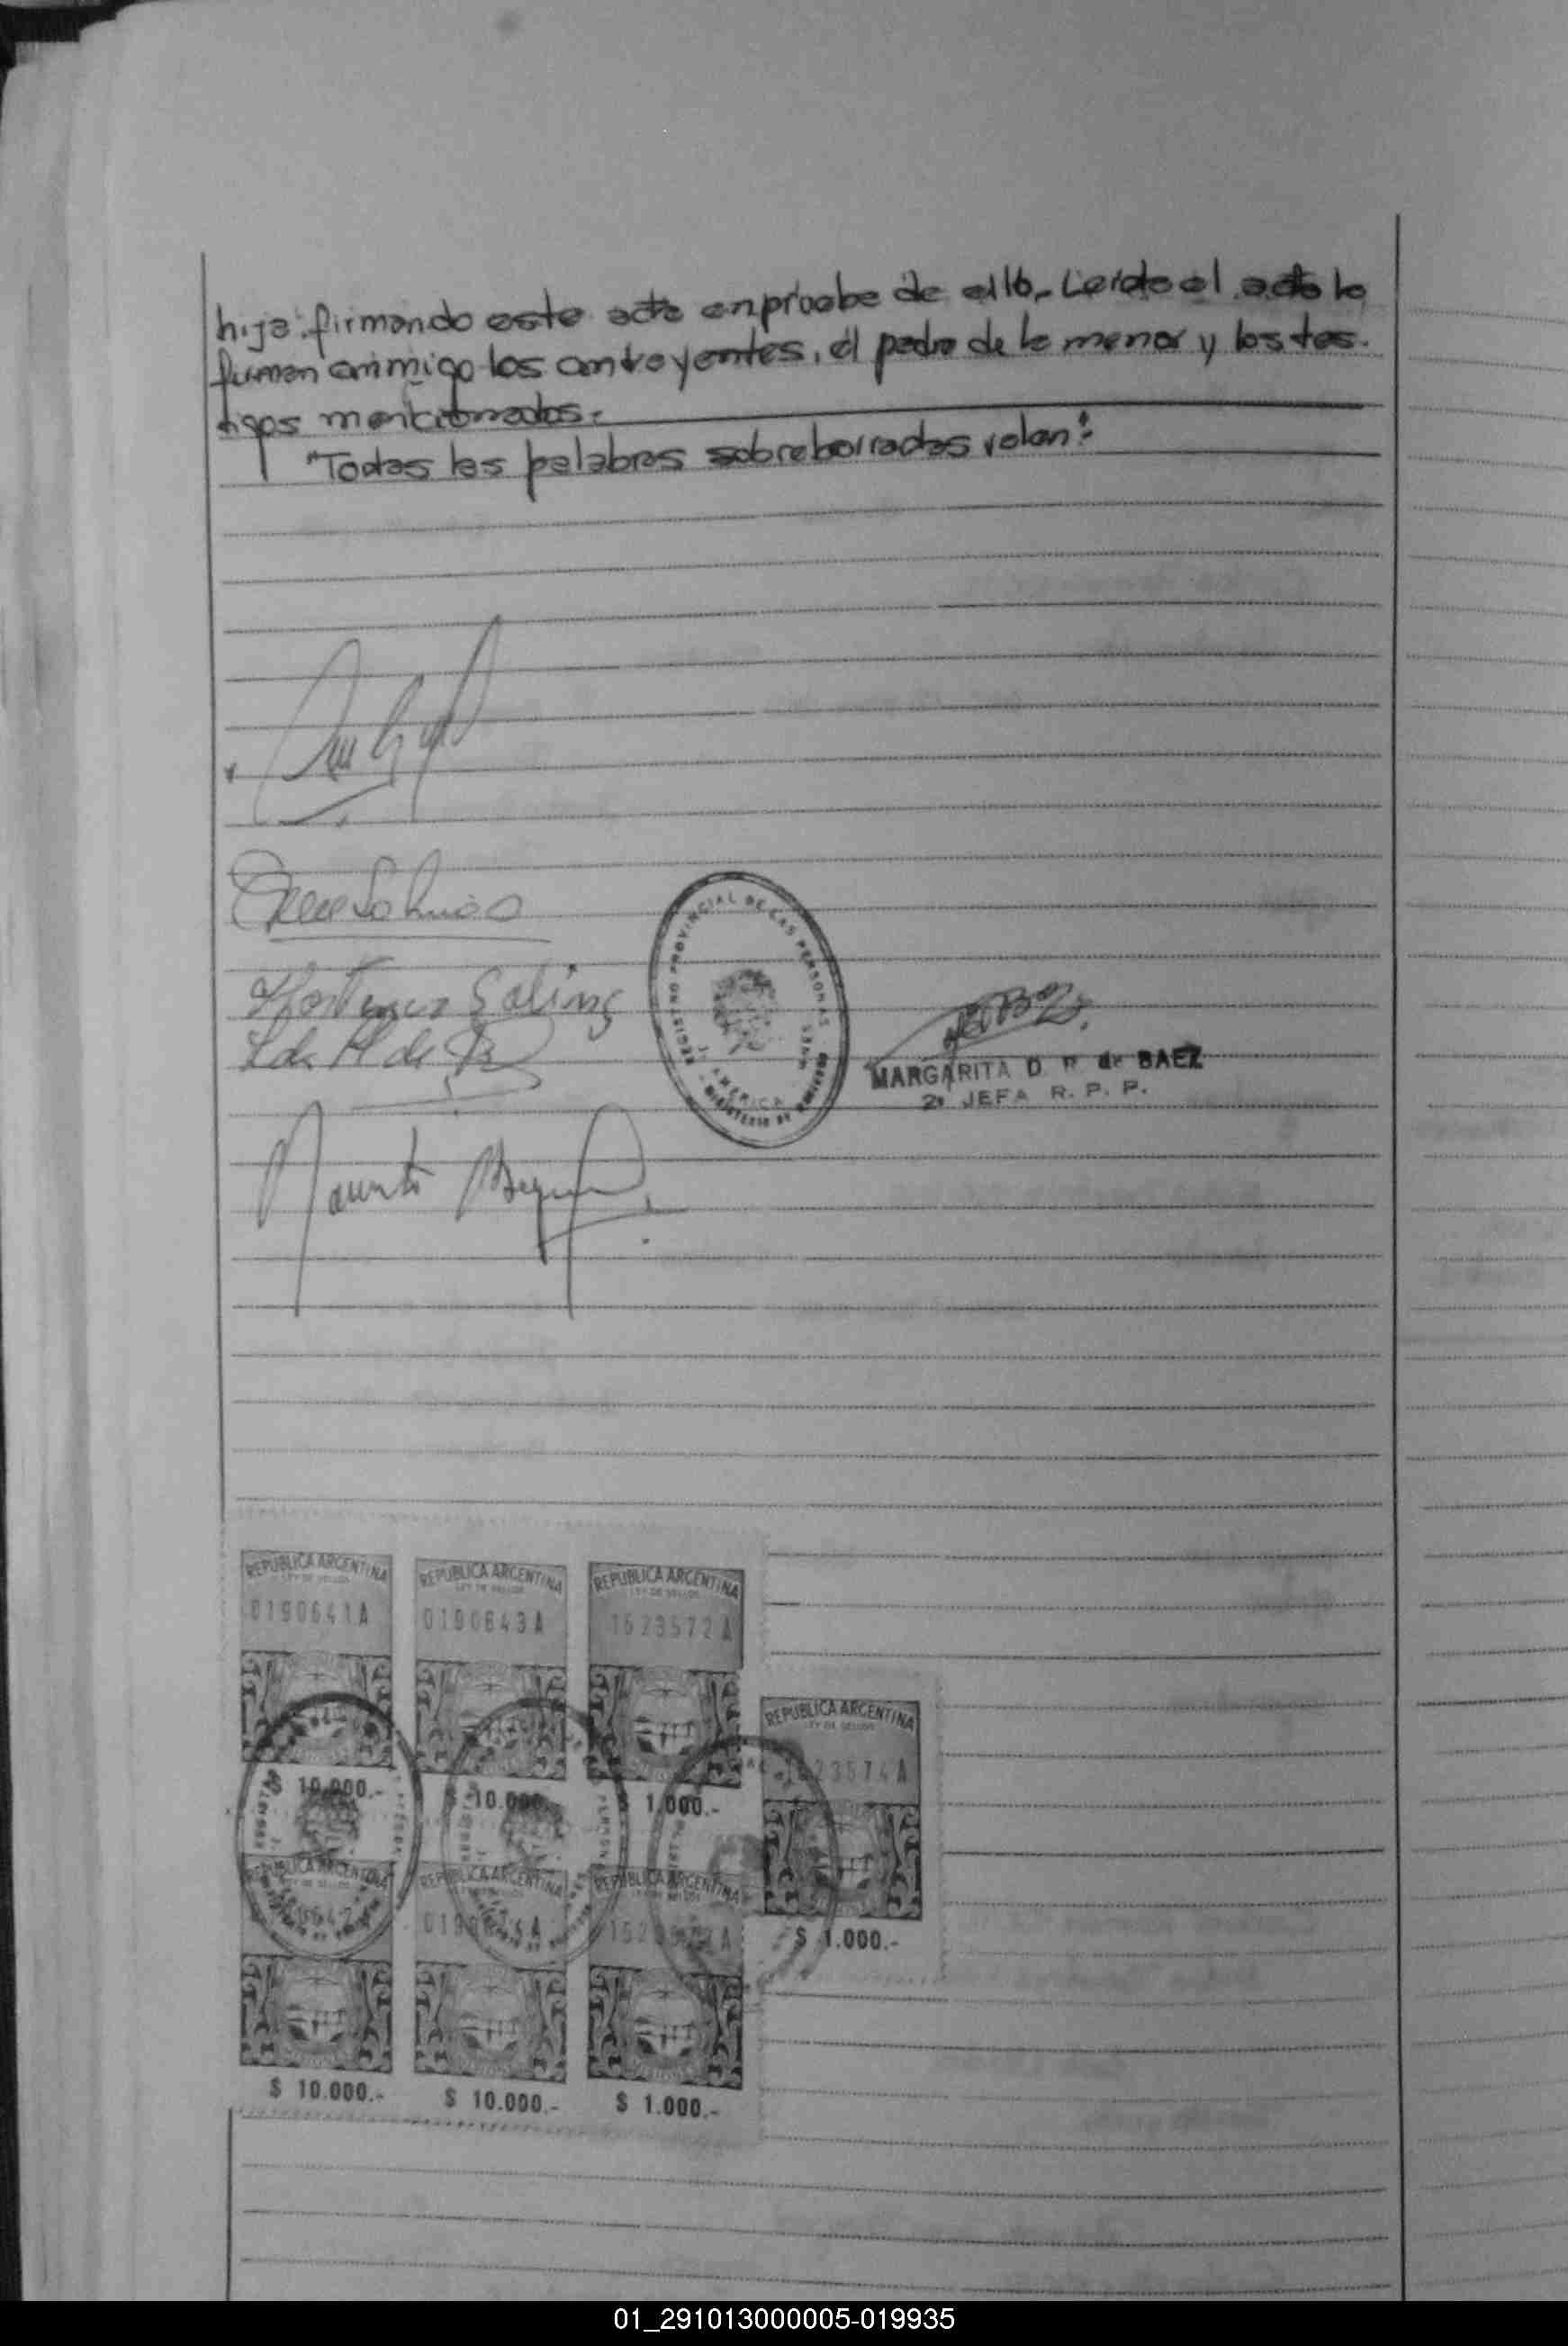 hija firmando este acta enprueba de ello. Leido el acta lo
firman conmigo los contrayentes, el padre de la menor y los tes-
tigos mencionados.
Todas las palabras sobreborradas valen:
Hortensia Salinas
REGISTRO PROVINCIAL DE LAS PERSONAS
AMERICA
MINISTERIO DE
MARGARITA D. R. de BAEZ
2º JEFA R. P. P.
REPUBLICA ARGENTINA
LEY DE SELLOS
0190641A
$ 10.000.-
REPUBLICA ARGENTINA
LEY DE SELLOS
0190643A
$ 10.000
REPUBLICA ARGENTINA
LEY DE SELLOS
1523572A
$ 1.000.-
REPUBLICA ARGENTINA
LEY DE SELLOS
23574A
$ 1.000.-
REPUBLICA ARGENTINA
$ 10.000.-
REPUBLICA ARGENTINA
$ 10.000.-
REPUBLICA ARGENTINA
$ 1.000.-
01_291013000005-019935